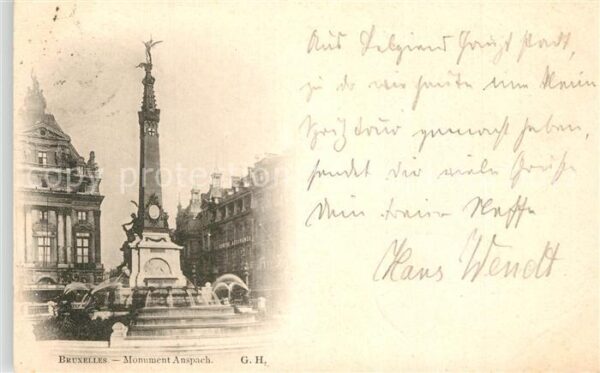 Aus Belgiens Haupt Stadt,
zu der wir heute eine kleine
Spritztour gemacht haben,
sendet Dir viele Grüße
Dein treuer Neffe
Hans Wendt
BRUXELLES. — Monument Anspach. G. H.